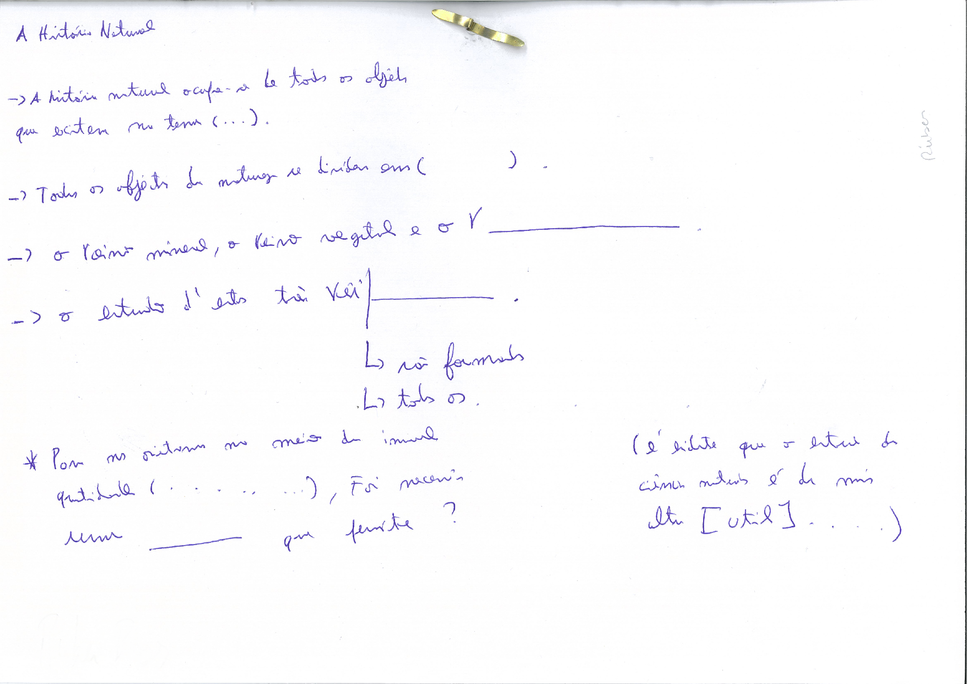 A História Natural
-> A história natural ocupa-se de todos os objets
que existem na terra (...).
-> Todos os objéts da natureza se dividem em ( ) .
-> o reino mineral, o reino vegetal e o r________ .
-> o estudo d'estes três rei|________ .
↳ são formados
↳ todos os .
* Para nos orientarmos no meio da imensa
quantidade (........), Foi necessário
uma ______ que permite ?
(é evidente que o estudo da
ciências naturais é da mais
alta [util] .....)